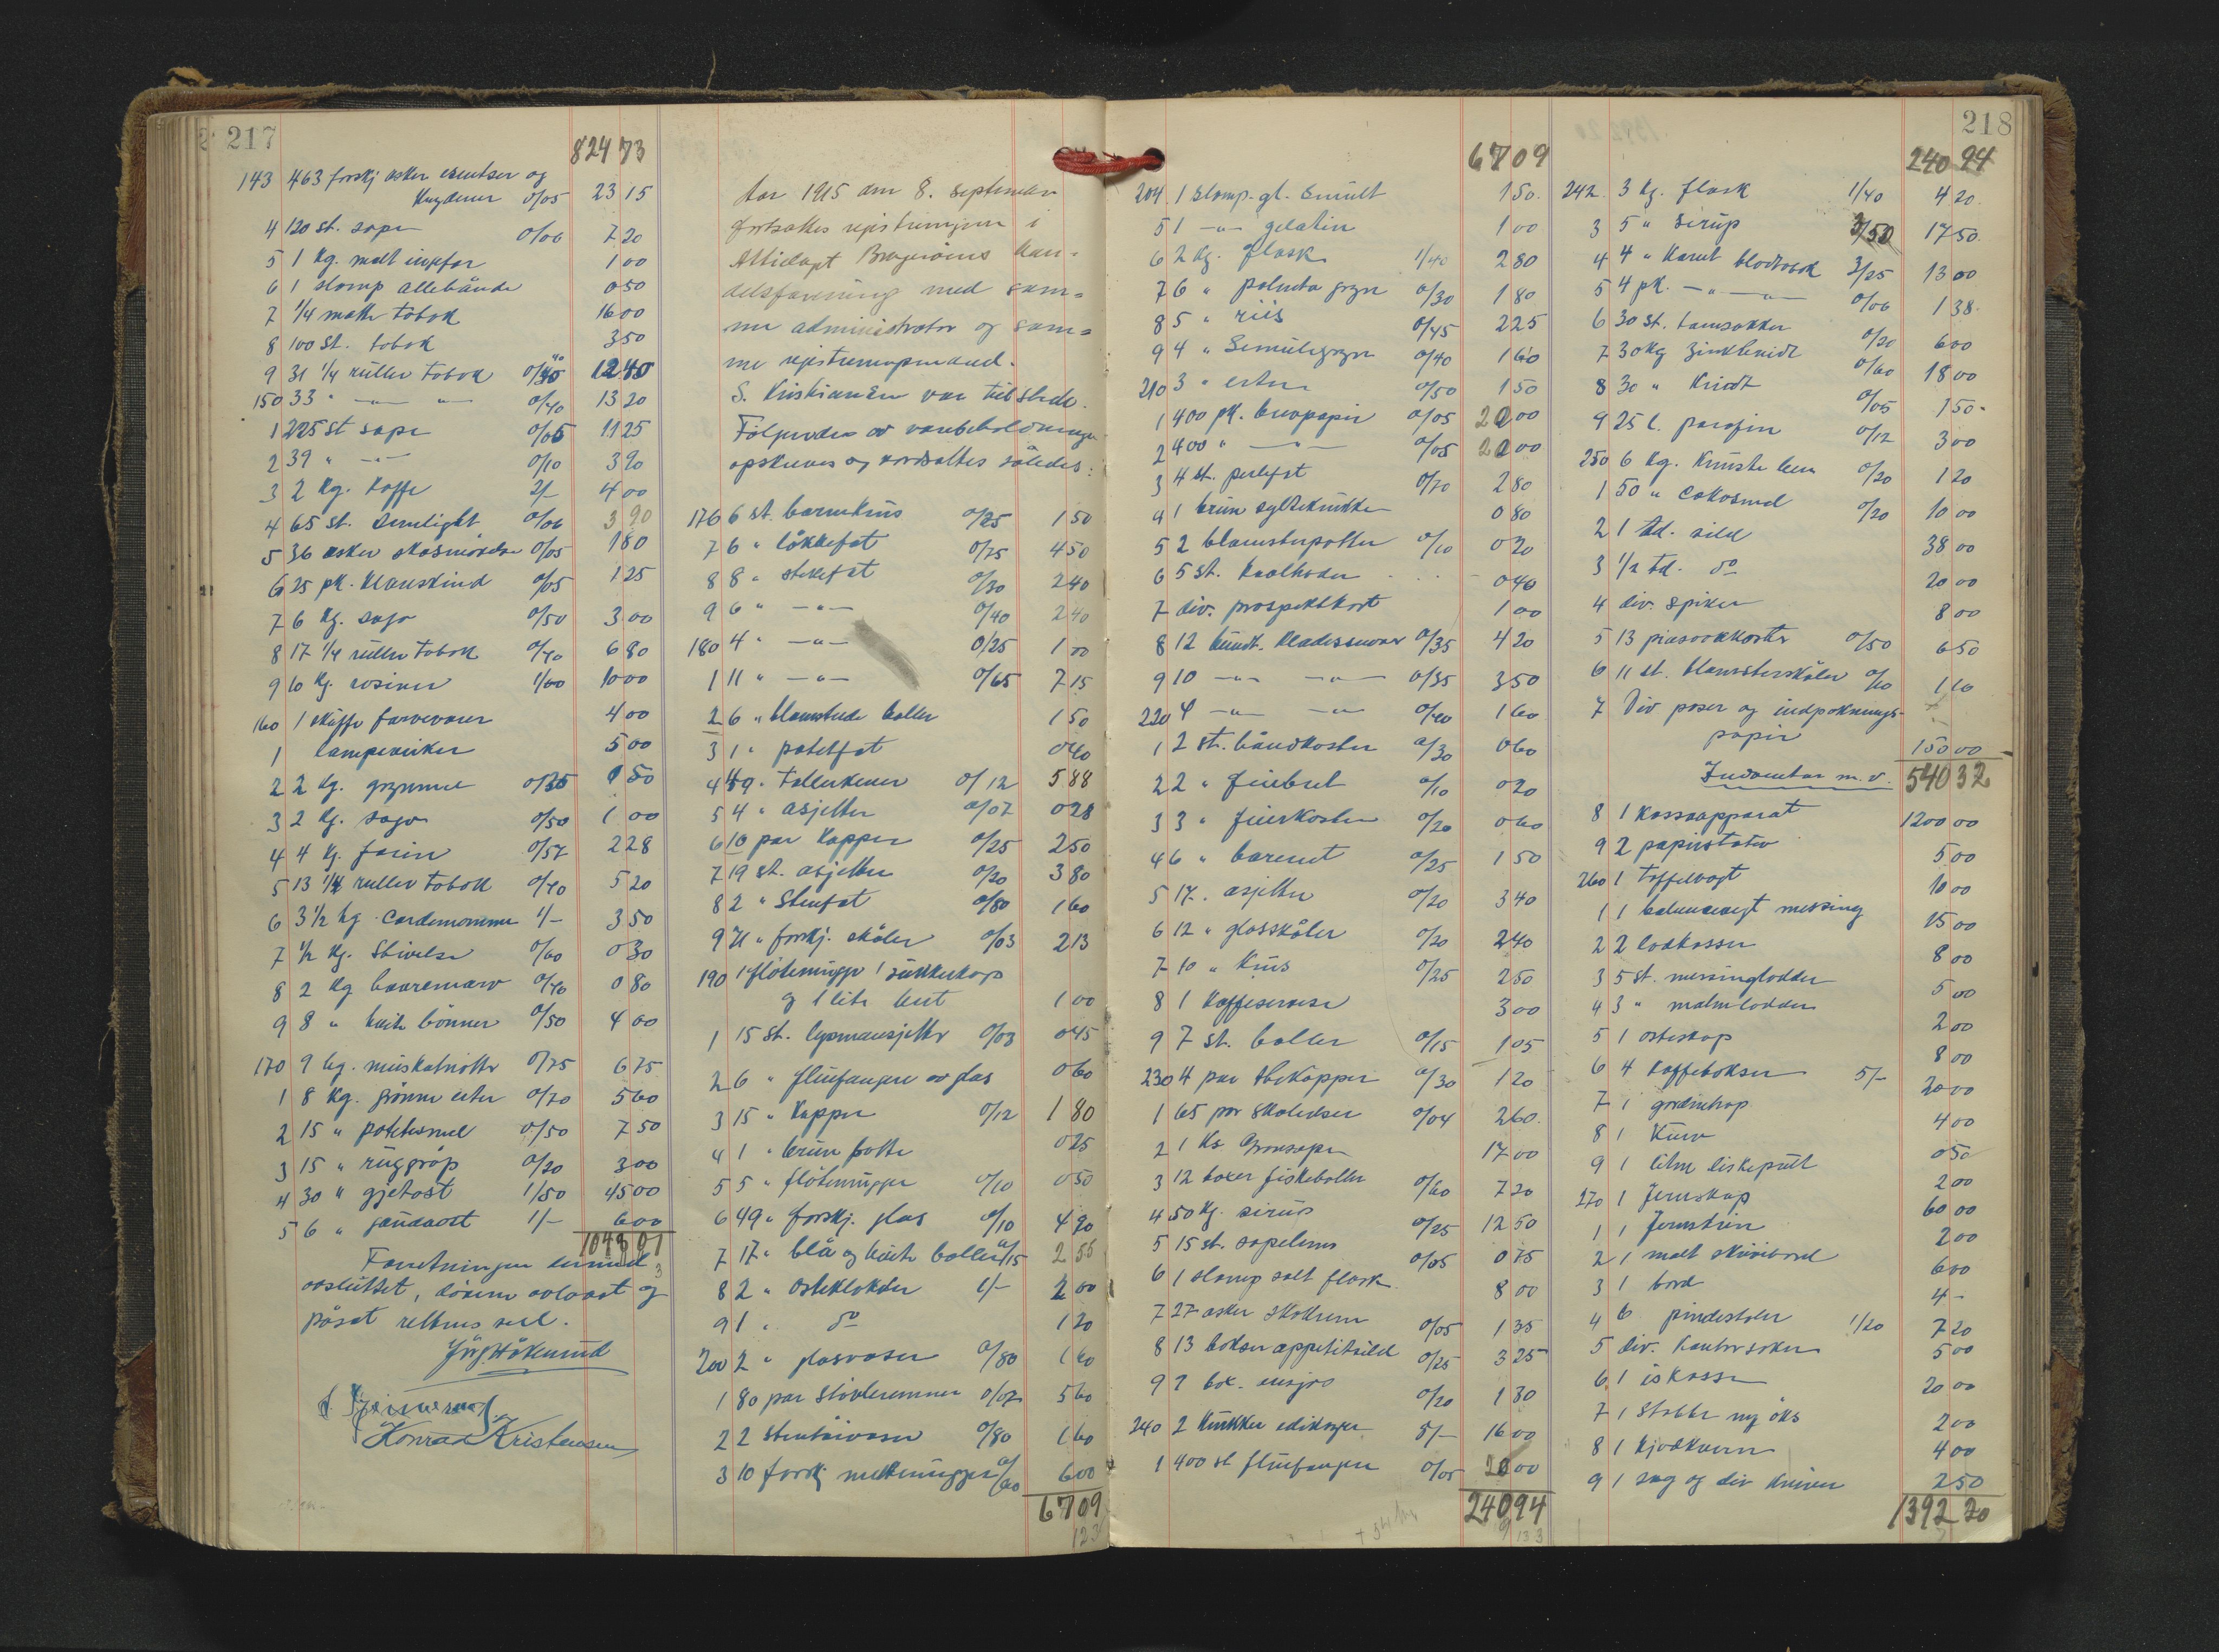 217
824 73
143 463 forskj esker esentser og
Krydener 0/05 23 15
4 120 st. sape 0/06 7 20
5 1 kg. malt ingefær 1 00
6 1 slomp allehånde 0 50
7 1/4 matte tobak 16 00
8 100 st. tobak 3 50
9 31 1/4 ruller tobak 0/40 12 40
150 33 " — " — " 0/40 13 20
1 225 st sape 0/05 11 25
2 39 " — " — 0/10 3 90
3 2 kg. kaffe 2/- 4 00
4 65 st. Sunlight 0/06 3 90
5 36 esker skosmørelse 0/05 1 80
6 25 pk. Klaueskind 0/05 1 25
7 6 kg. sago 0/50 3 00
8 17 1/4 ruller tobak 0/40 6 80
9 10 kg. rosiner 1/00 10 00
160 1 skuffe farvevarer 4 00
1 lampeveiker 5 00
2 2 kg. grynmel 0/25 0 50
3 2 kg. sago 0/50 1 00
4 4 kg. farin 0/57 2 28
5 13 1/4 ruller tobak 0/40 5 20
6 3 1/2 hg. Cardemomme 1/- 3 50
7 1/2 kg. Stivelse 0/60 0 30
8 2 kg laurenarv 0/40 0 80
9 8 " hvite bønner 0/50 4 00
170 9 hg. muskatnøtter 0/75 6 75
1 8 kg. grønne erter 0/70 5 60
2 15 " potetesmel 0/50 7 50
3 15 " ruggrøp 0/20 3 00
4 30 " gjetost 1/50 45 00
5 6 " goudaost 1/- 6 00
1048 01
Forretningen dermed
avsluttet, døren avlaast og
påsat rettens seil.
Konrad Kristensen
Aar 1915 den 8. september
fortsattes registreringen i
Attielagt Bragerøens han-
delsforening med sam-
me administrator og sam-
me registreringsmænd.
S. Kristiansen var tilstede.
Følgende av varebeholdningen
opskreves og verdsattes således:
176 6 st. barnekrus 0/25 1 50
7 6 " løkkefat 0/75 4 50
8 8 " stekefat 0/30 2 40
9 6 " — " — 0/40 2 40
180 4 " — " — 0/25 1 00
1 11 " — " — 0/65 7 15
2 6 " blomstrede boller 1 50
3 1 " potetfat 0 40
4 49 " Tallerkener 0/12 5 88
5 4 " asjetter 0/07 0 28
6 10 par Kopper 0/25 2 50
7 19 st. asjetter 0/20 3 80
8 2 " Stenfat 0/80 1 60
9 71 " forskj. skåler 0/03 2 13
190 1 fløtemugge 1 sukkerkop
og 1 lite bret 1 00
1 15 st. lysmansjetter 0/03 0 45
2 6 " fluefangere av glas 0 60
3 15 " Kopper 0/12 1 80
4 1 " brun potte 0 25
5 5 " fløtemugger 0/10 0 50
6 49 " forskj. glas 0/10 4 90
7 17 " blå og hvite boller 0/15 2 55
8 2 " Osteklokker 1/- 2 00
9 1 " do 1 20
200 2 " glasvaser 0/80 1 60
1 80 par Støvleremmer 0/07 5 60
2 2 stentøivaser 0/80 1 60
3 10 forskj melkemugger 0/60 6 00
67 09
218
67 09
204 1 slomp. gl. Semult 1 50
5 1 — " — gelatin 1 00
6 2 kg. flask 1/40 2 80
7 6 " polenta gryn 0/30 1 80
8 5 " riis 0/45 2 25
9 4 " Semulegryn 0/40 1 60
210 3 " erter 0/50 1 50
1 400 pk. brevpapir 0/05 20 00
2 400 " — " — 0/05 20 00
3 4 st. perlefat 0/70 2 80
4 1 brun syltekrukke 0 80
5 2 blomsterpotter 0/10 0 20
6 5 st. Kaalhoder 0 40
7 div. prospektkort 1 00
8 12 bundt. Kladessnorer 0/35 4 20
9 10 — " — " — 0/35 3 50
220 4 — " — " — 0/40 1 60
1 2 st. håndkoster 0/30 0 60
2 2 " feiebret 0/10 0 20
3 3 " feierkoster 0/20 0 60
4 6 " barenet 0/25 1 50
5 17 " asjetter 0/20 3 40
6 12 " glasskåler 0/20 2 40
7 10 " Krus 0/25 2 50
8 1 Kaffeservise 3 00
9 7 st. boller 0/15 1 05
230 4 par thekopper 0/30 1 20
1 65 par Skolesker 0/04 2 60
2 1 ks Grønsape 17 00
3 12 boxer fiskeboller 0/60 7 20
4 50 kg. sirup 0/25 12 50
5 15 st. sopelime 0/05 0 75
6 1 slomp salt flask 8 00
7 27 esker skokrem 0/05 1 35
8 13 bokser appetitsild 0/25 3 25
9 7 box. ansjos 0/20 1 30
240 2 Krukker edikspr 5/- 16 00
1 400 st fluefangere 0/05 20 00
240 94
240 94
242 3 kg. flask 1/40 4 20
3 5 " Sirup 3/50 17 50
4 4 " Karvet bladtobak 3/25 13 00
5 4 pk. — " — " — 0/06 1 38
6 30 st. tomsakker 0/20 6 00
7 30 kg Zinkhvidt 0/60 18 00
8 30 " Kridt 0/05 1 50
9 25 l. parafin 0/12 3 00
250 6 kg. Knuste ben 0/20 1 20
1 50 " Cokosmel 0/20 10 00
2 1 td. sild 38 00
3 1/2 td. do 20 00
4 div. spiker 8 00
5 13 piasavakoster 0/50 6 50
6 11 st. blomsterskåler 0/10 1 10
7 Div poser og indpaknings-
papir 150 00
Inventar m.v. 540 32
8 1 Kassaapparat 1200 00
9 2 papirstativ 5 00
260 1 taffelvegt 10 00
1 1 balancevegt messing 15 00
2 2 lodkasser 8 00
3 5 st. messinglodder 5 00
4 3 " malmlodder 2 00
5 1 osteskap 8 00
6 4 Kaffebokser 5/- 20 00
7 1 gardintrap 4 00
8 1 Kurv 0 50
9 1 liten diskepult 2 00
270 1 Jernskap 60 00
1 1 Jernstrin 2 00
2 1 malt skrivebord 6 00
3 1 bord 4 -
4 6 pindestoler 1/20 7 20
5 div. kontorsaker 5 00
6 1 iskasse 20 00
7 1 Stabbe og øks 2 00
8 1 Kjødkvern 4 00
9 1 sag og div kniver 2 50
1392 20